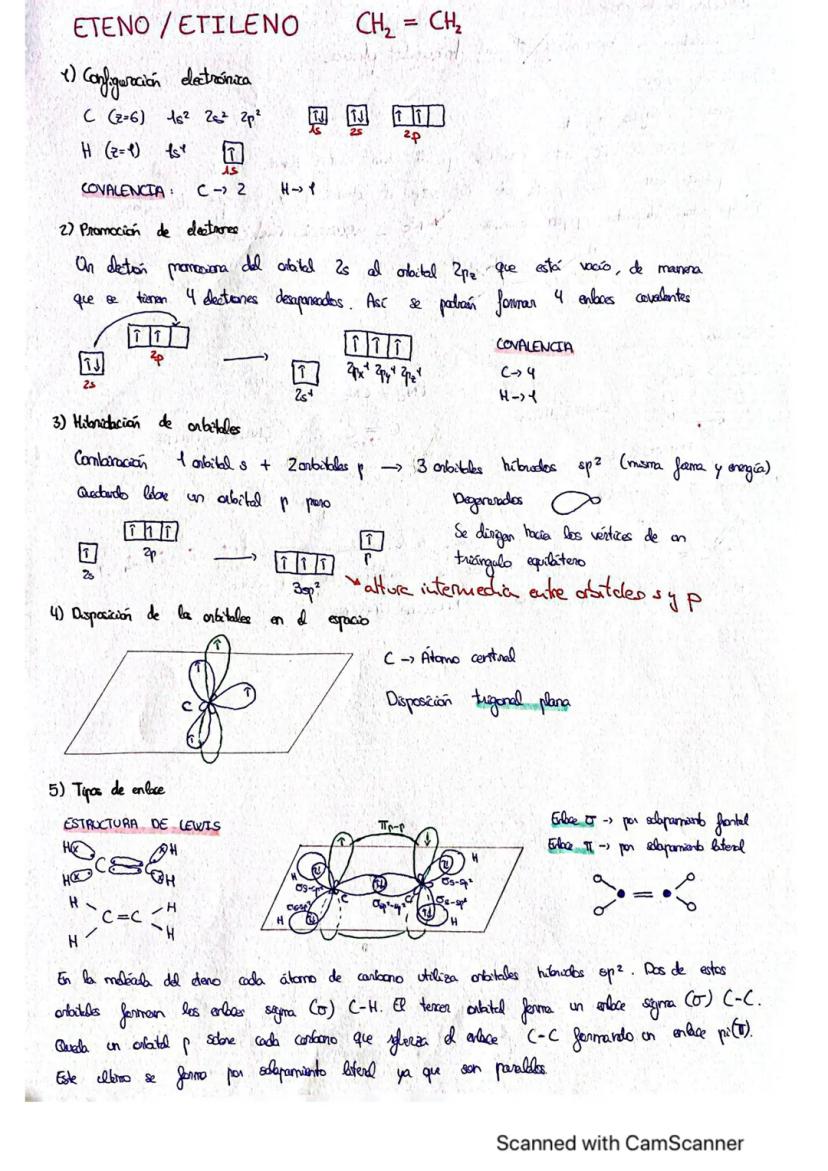 ETENO / ETILENO CH₂ = CH₂
1) Configuración electrónica
C (z=6) 1s² 2s² 2p² ↑↓ ↑↓ ↑ ↑
1s 2s 2p
H (z=1) 1s¹ ↑
1s
COVALENCIA: C → 2 H → 1
2) Promoción de electrones
Un electrón promociona del orbital 2s al orbital 2pz que está vacío, de manera
que se tienen 4 electrones desapareados. Así se podrán formar 4 enlaces covalentes
↑ ↑
2p
↑↓
2s
↑ ↑ ↑
2px¹ 2py¹ 2pz¹
↑
2s¹
COVALENCIA
C → 4
H → 1
3) Hibridación de orbitales
Combinación 1 orbital s + 2 orbitales p → 3 orbitales híbridos sp² (misma forma y energía)
Quedando libre un orbital p puro
Degenerados
Se dirigen hacia los vértices de un
triángulo equilátero
↑ ↑ ↑
2p
↑
2s
↑ ↑ ↑
3sp²
↑
p
altura intermedia entre orbitales s y p
4) Disposición de los orbitales en el espacio
C
C → Átomo central
Disposición trigonal plana
5) Tipos de enlace
ESTRUCTURA DE LEWIS
Hx C C H
Hx H
H H
C=C
H H
πp-p
H H
σs-sp² σs-sp²
C C
σs-sp² σsp²-sp² σs-sp²
H H
Enlace σ → por solapamiento frontal
Enlace π → por solapamiento lateral
En la molécula del eteno cada átomo de carbono utiliza orbitales híbridos sp². Dos de estos
orbitales forman los enlaces sigma (σ) C-H. El tercer orbital forma un enlace sigma (σ) C-C.
Queda un orbital p sobre cada carbono que refuerza el enlace C-C formando un enlace pi (π).
Este último se forma por solapamiento lateral ya que son paralelos.
Scanned with CamScanner